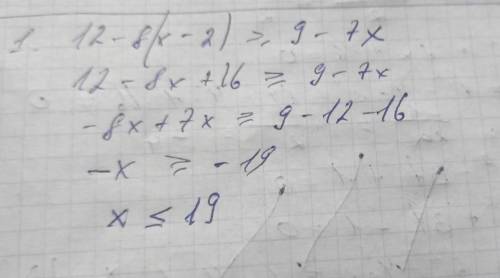 1. 12 - 8(x - 2) ≥ 9 - 7x
12 - 8x + 16 ≥ 9 - 7x
-8x + 7x ≥ 9 - 12 - 16
-x ≥ -19
x ≤ 19